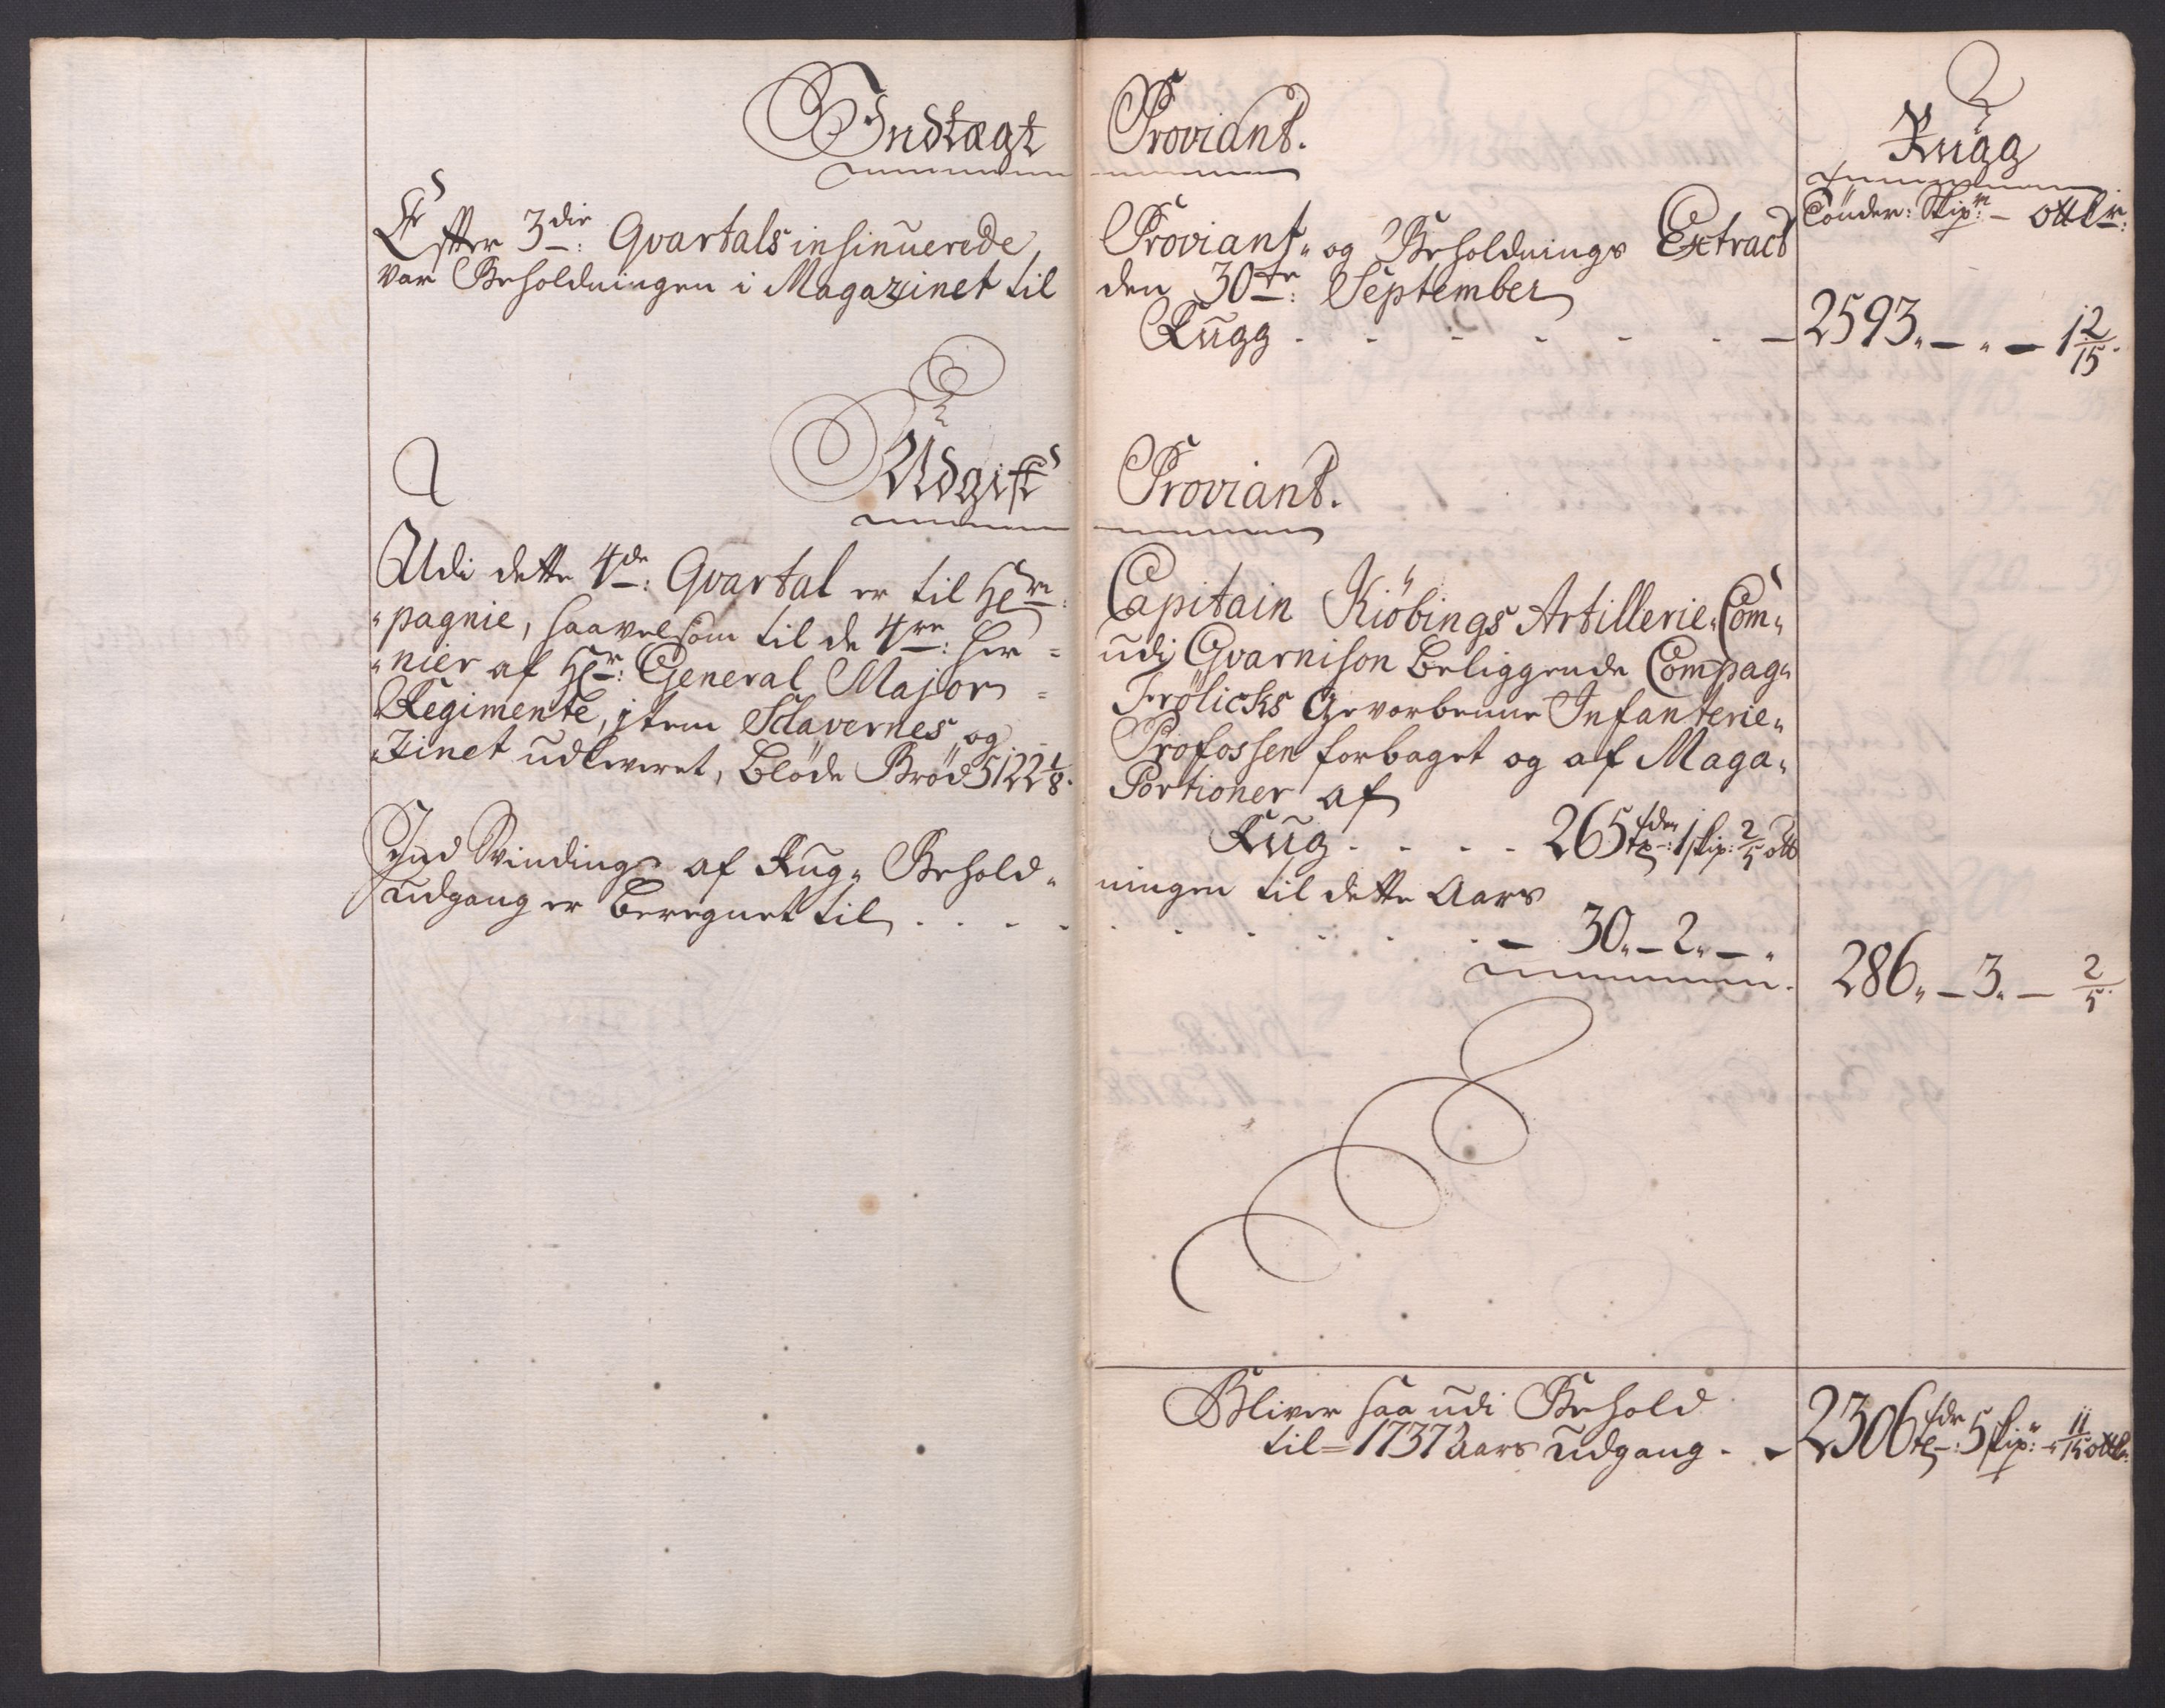 Indtægt Proviant.
Rugg
Tönder: Skip:r - ottkr:
Efter 3die: Qvartals insinuerede Proviant- og Beholdnings Extract
var Beholdningen i Magazinet til den 30te: September
Rugg - - - - - - - 2593.- " - 1 2/15.
Udgift Proviant.
Udi dette 4de: Qvartal er til Hrn: Capitain Kiöbings Artillerie-Com-
-pagnie, saavelsom til de 4re: her- udj Gvarnison beliggende Compag-
-nier af Hr: General Major Frölichs Gevorbenne Infanterie-
Regimente, jtem Sclavernes og Profossen forbaget og af Maga-
-zinet udleveret, Bløde Brød 5122 1/8. Portioner af
Rug - - - - 265 tdr: 1 skip: 2/5 ott
Ind Svinding af Rug- Behold- ningen til dette Aars
udgang er beregnet til - - - - - - - - - 30.- 2.- "
286.- 3.- 2/5.
Bliver saa udi Behold
til 1737 Aars Udgang. - 2306 tdr: 5 skip: - 11/15 ottk: